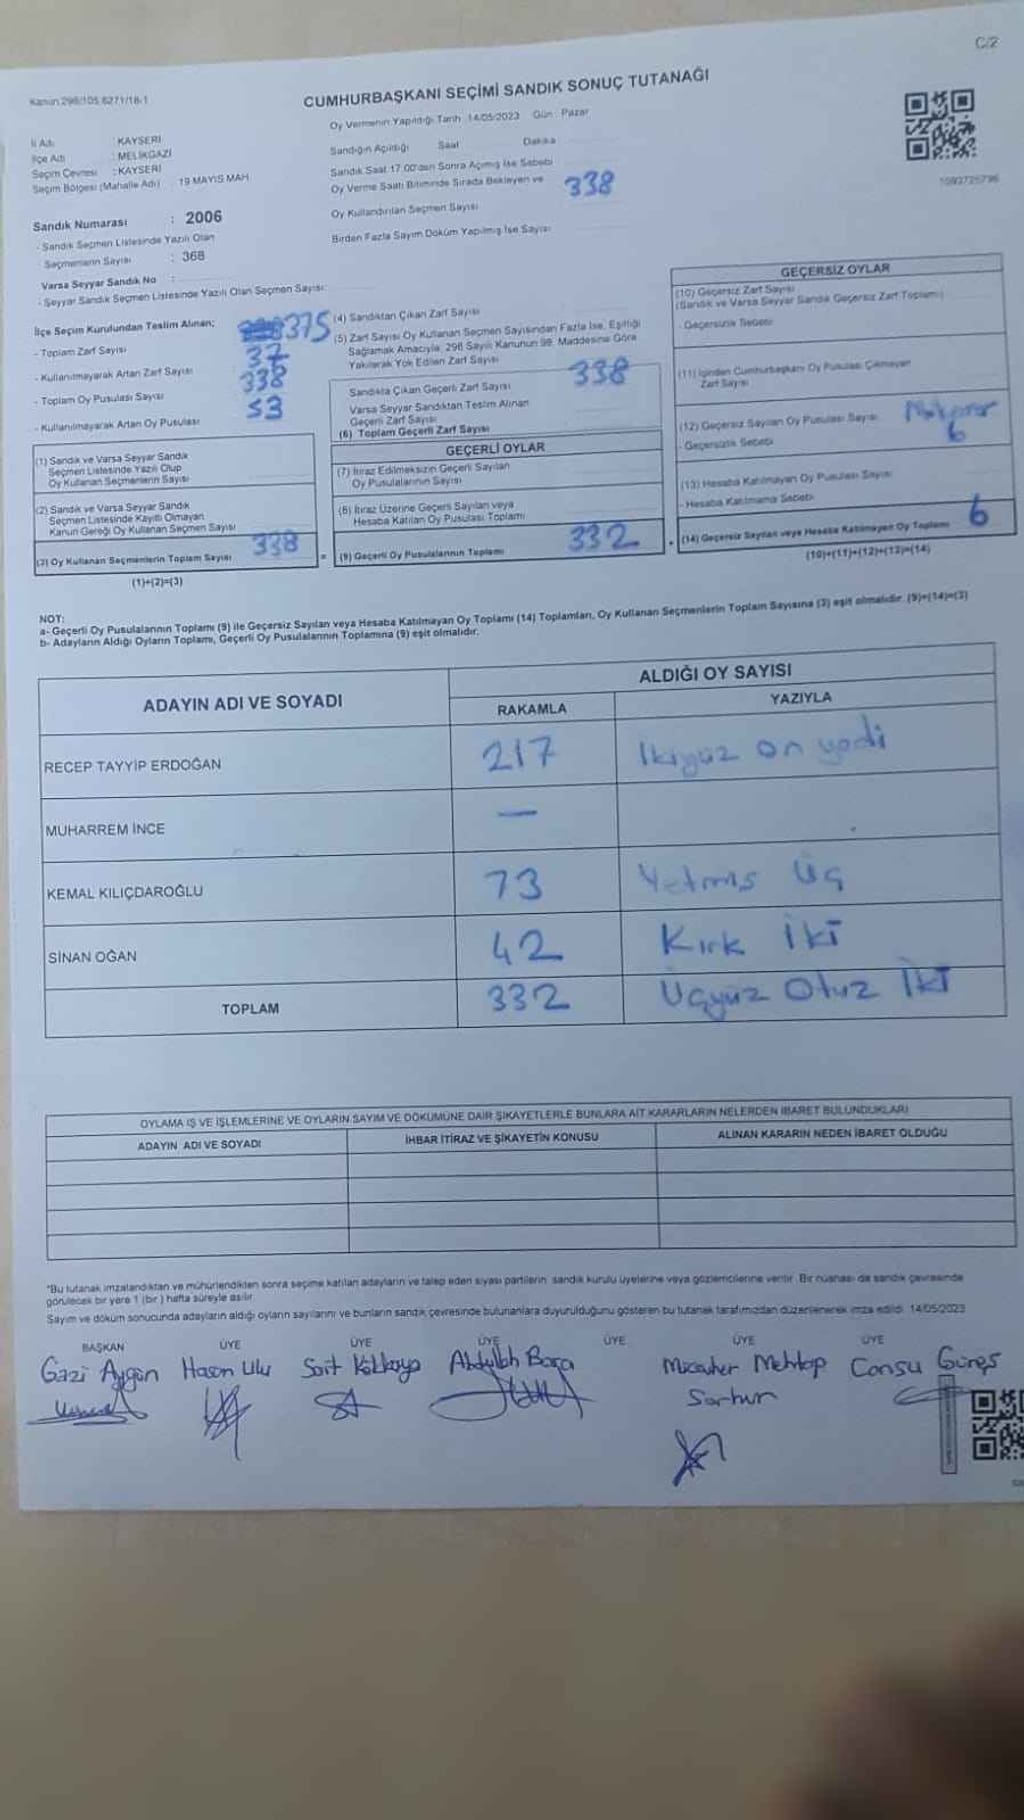 C/2
Kanun 298/105 6271/18-1
CUMHURBAŞKANI SEÇİMİ SANDIK SONUÇ TUTANAĞI
Oy Vermenin Yapıldığı Tarih 14/05/2023 Gün : Pazar
İl Adı : KAYSERİ
İlçe Adı : MELİKGAZİ
Seçim Çevresi : KAYSERİ
Seçim Bölgesi (Mahalle Adı) : 19 MAYIS MAH.
Sandık Numarası : 2006
- Sandık Seçmen Listesinde Yazılı Olan
Seçmenlerin Sayısı : 368
Varsa Seyyar Sandık No :
- Seyyar Sandık Seçmen Listesinde Yazılı Olan Seçmen Sayısı:
Sandığın Açıldığı Saat Dakika
Sandık Saat 17.00'den Sonra Açılmış İse Sebebi
Oy Verme Saati Bitiminde Sırada Bekleyen ve
Oy Kullandırılan Seçmen Sayısı 338
Birden Fazla Sayım Döküm Yapılmış İse Sayısı
İlçe Seçim Kurulundan Teslim Alınan;
- Toplam Zarf Sayısı 375
- Kullanılmayarak Artan Zarf Sayısı 37
- Toplam Oy Pusulası Sayısı 338
- Kullanılmayarak Artan Oy Pusulası 53
(1) Sandık ve Varsa Seyyar Sandık
Seçmen Listesinde Yazılı Olup
Oy Kullanan Seçmenlerin Sayısı
(2) Sandık ve Varsa Seyyar Sandık
Seçmen Listesinde Kayıtlı Olmayan
Kanun Gereği Oy Kullanan Seçmen Sayısı
(3) Oy Kullanan Seçmenlerin Toplam Sayısı 338
(1)+(2)=(3)
(4) Sandıktan Çıkan Zarf Sayısı
(5) Zarf Sayısı Oy Kullanan Seçmen Sayısından Fazla İse, Eşitliği
Sağlamak Amacıyla, 298 Sayılı Kanunun 98. Maddesine Göre
Yakılarak Yok Edilen Zarf Sayısı
Sandıkta Çıkan Geçerli Zarf Sayısı 338
Varsa Seyyar Sandıktan Teslim Alınan
Geçerli Zarf Sayısı
(6) Toplam Geçerli Zarf Sayısı
GEÇERLİ OYLAR
(7) İtiraz Edilmeksizin Geçerli Sayılan
Oy Pusulalarının Sayısı
(8) İtiraz Üzerine Geçerli Sayılan veya
Hesaba Katılan Oy Pusulası Toplamı
= (9) Geçerli Oy Pusulalarının Toplamı 332
GEÇERSİZ OYLAR
(10) Geçersiz Zarf Sayısı
(Sandık ve Varsa Seyyar Sandık Geçersiz Zarf Toplamı)
- Geçersizlik Sebebi
(11) İçinden Cumhurbaşkanı Oy Pusulası Çıkmayan
Zarf Sayısı
(12) Geçersiz Sayılan Oy Pusulası Sayısı 6
- Geçersizlik Sebebi
(13) Hesaba Katılmayan Oy Pusulası Sayısı
- Hesaba Katılmama Sebebi
+ (14) Geçersiz Sayılan veya Hesaba Katılmayan Oy Toplamı 6
(10)+(11)+(12)+(13)=(14)
NOT:
a- Geçerli Oy Pusulalarının Toplamı (9) ile Geçersiz Sayılan veya Hesaba Katılmayan Oy Toplamı (14) Toplamları, Oy Kullanan Seçmenlerin Toplam Sayısına (3) eşit olmalıdır. (9)+(14)=(3)
b- Adayların Aldığı Oyların Toplamı, Geçerli Oy Pusulalarının Toplamına (9) eşit olmalıdır.
ADAYIN ADI VE SOYADI ALDIĞI OY SAYISI
RAKAMLA YAZIYLA
RECEP TAYYİP ERDOĞAN 217 İkiyüz on yedi
MUHARREM İNCE —
KEMAL KILIÇDAROĞLU 73 Yetmiş Üç
SİNAN OĞAN 42 Kırk İki
TOPLAM 332 Üçyüz Otuz İki
OYLAMA İŞ VE İŞLEMLERİNE VE OYLARIN SAYIM VE DÖKÜMÜNE DAİR ŞİKAYETLERLE BUNLARA AİT KARARLARIN NELERDEN İBARET BULUNDUKLARI
ADAYIN ADI VE SOYADI İHBAR İTİRAZ VE ŞİKAYETİN KONUSU ALINAN KARARIN NEDEN İBARET OLDUĞU
"Bu tutanak imzalandıktan ve mühürlendikten sonra seçime katılan adayların ve talep eden siyasi partilerin sandık kurulu üyelerine veya gözlemcilerine verilir. Bir nüshası da sandık çevresinde
görülecek bir yere 1 (bir) hafta süreyle asılır.
Sayım ve döküm sonucunda adayların aldığı oyların sayılarını ve bunların sandık çevresinde bulunanlara duyurulduğunu gösteren bu tutanak tarafımızdan düzenlenerek imza edildi. 14/05/2023
BAŞKAN ÜYE ÜYE ÜYE ÜYE ÜYE ÜYE
Gazi Aygün Hasan Ulu Sait Abdullah Mehtap Cansu Güneş